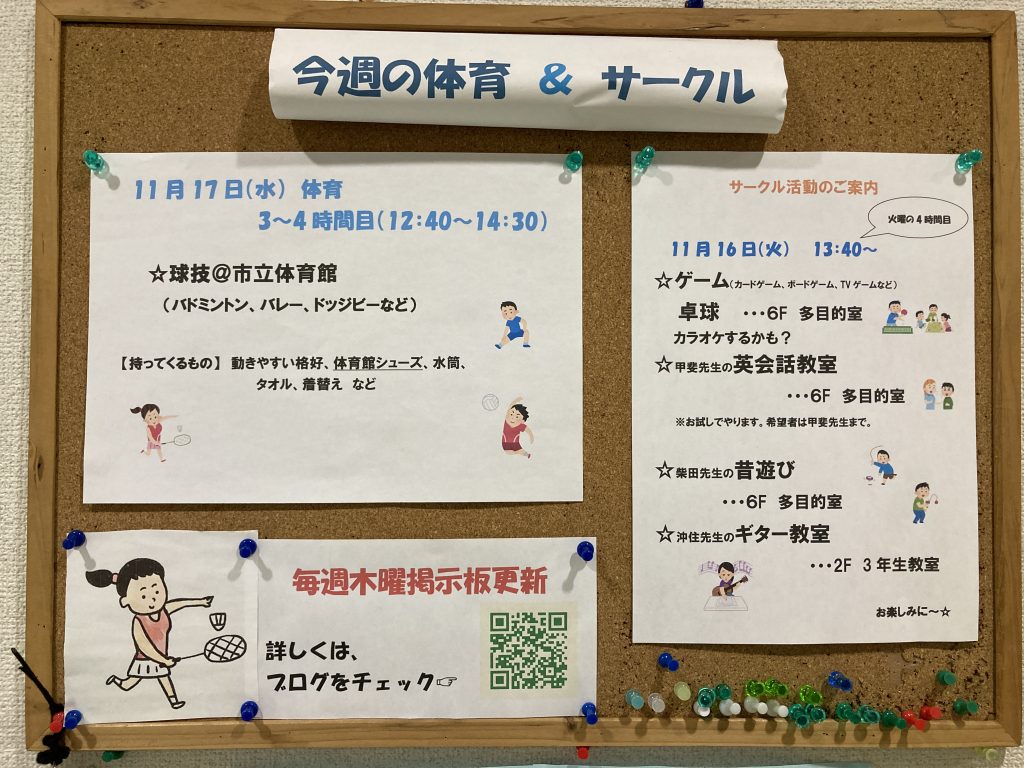 今週の体育 & サークル
11月17日(水) 体育
3～4時間目(12:40～14:30)
☆球技@市立体育館
(バドミントン、バレー、ドッジビーなど)
【持ってくるもの】 動きやすい格好、体育館シューズ、水筒、
タオル、着替え など
サークル活動のご案内
火曜の4時間目
11月16日(火) 13:40～
☆ゲーム(カードゲーム、ボードゲーム、TVゲームなど)
卓球 ・・・6F 多目的室
カラオケするかも？
☆甲斐先生の英会話教室
・・・6F 多目的室
※お試しでやります。希望者は甲斐先生まで。
☆柴田先生の昔遊び
・・・6F 多目的室
☆沖住先生のギター教室
・・・2F 3年生教室
お楽しみに～☆
毎週木曜掲示板更新
詳しくは、
ブログをチェック☞